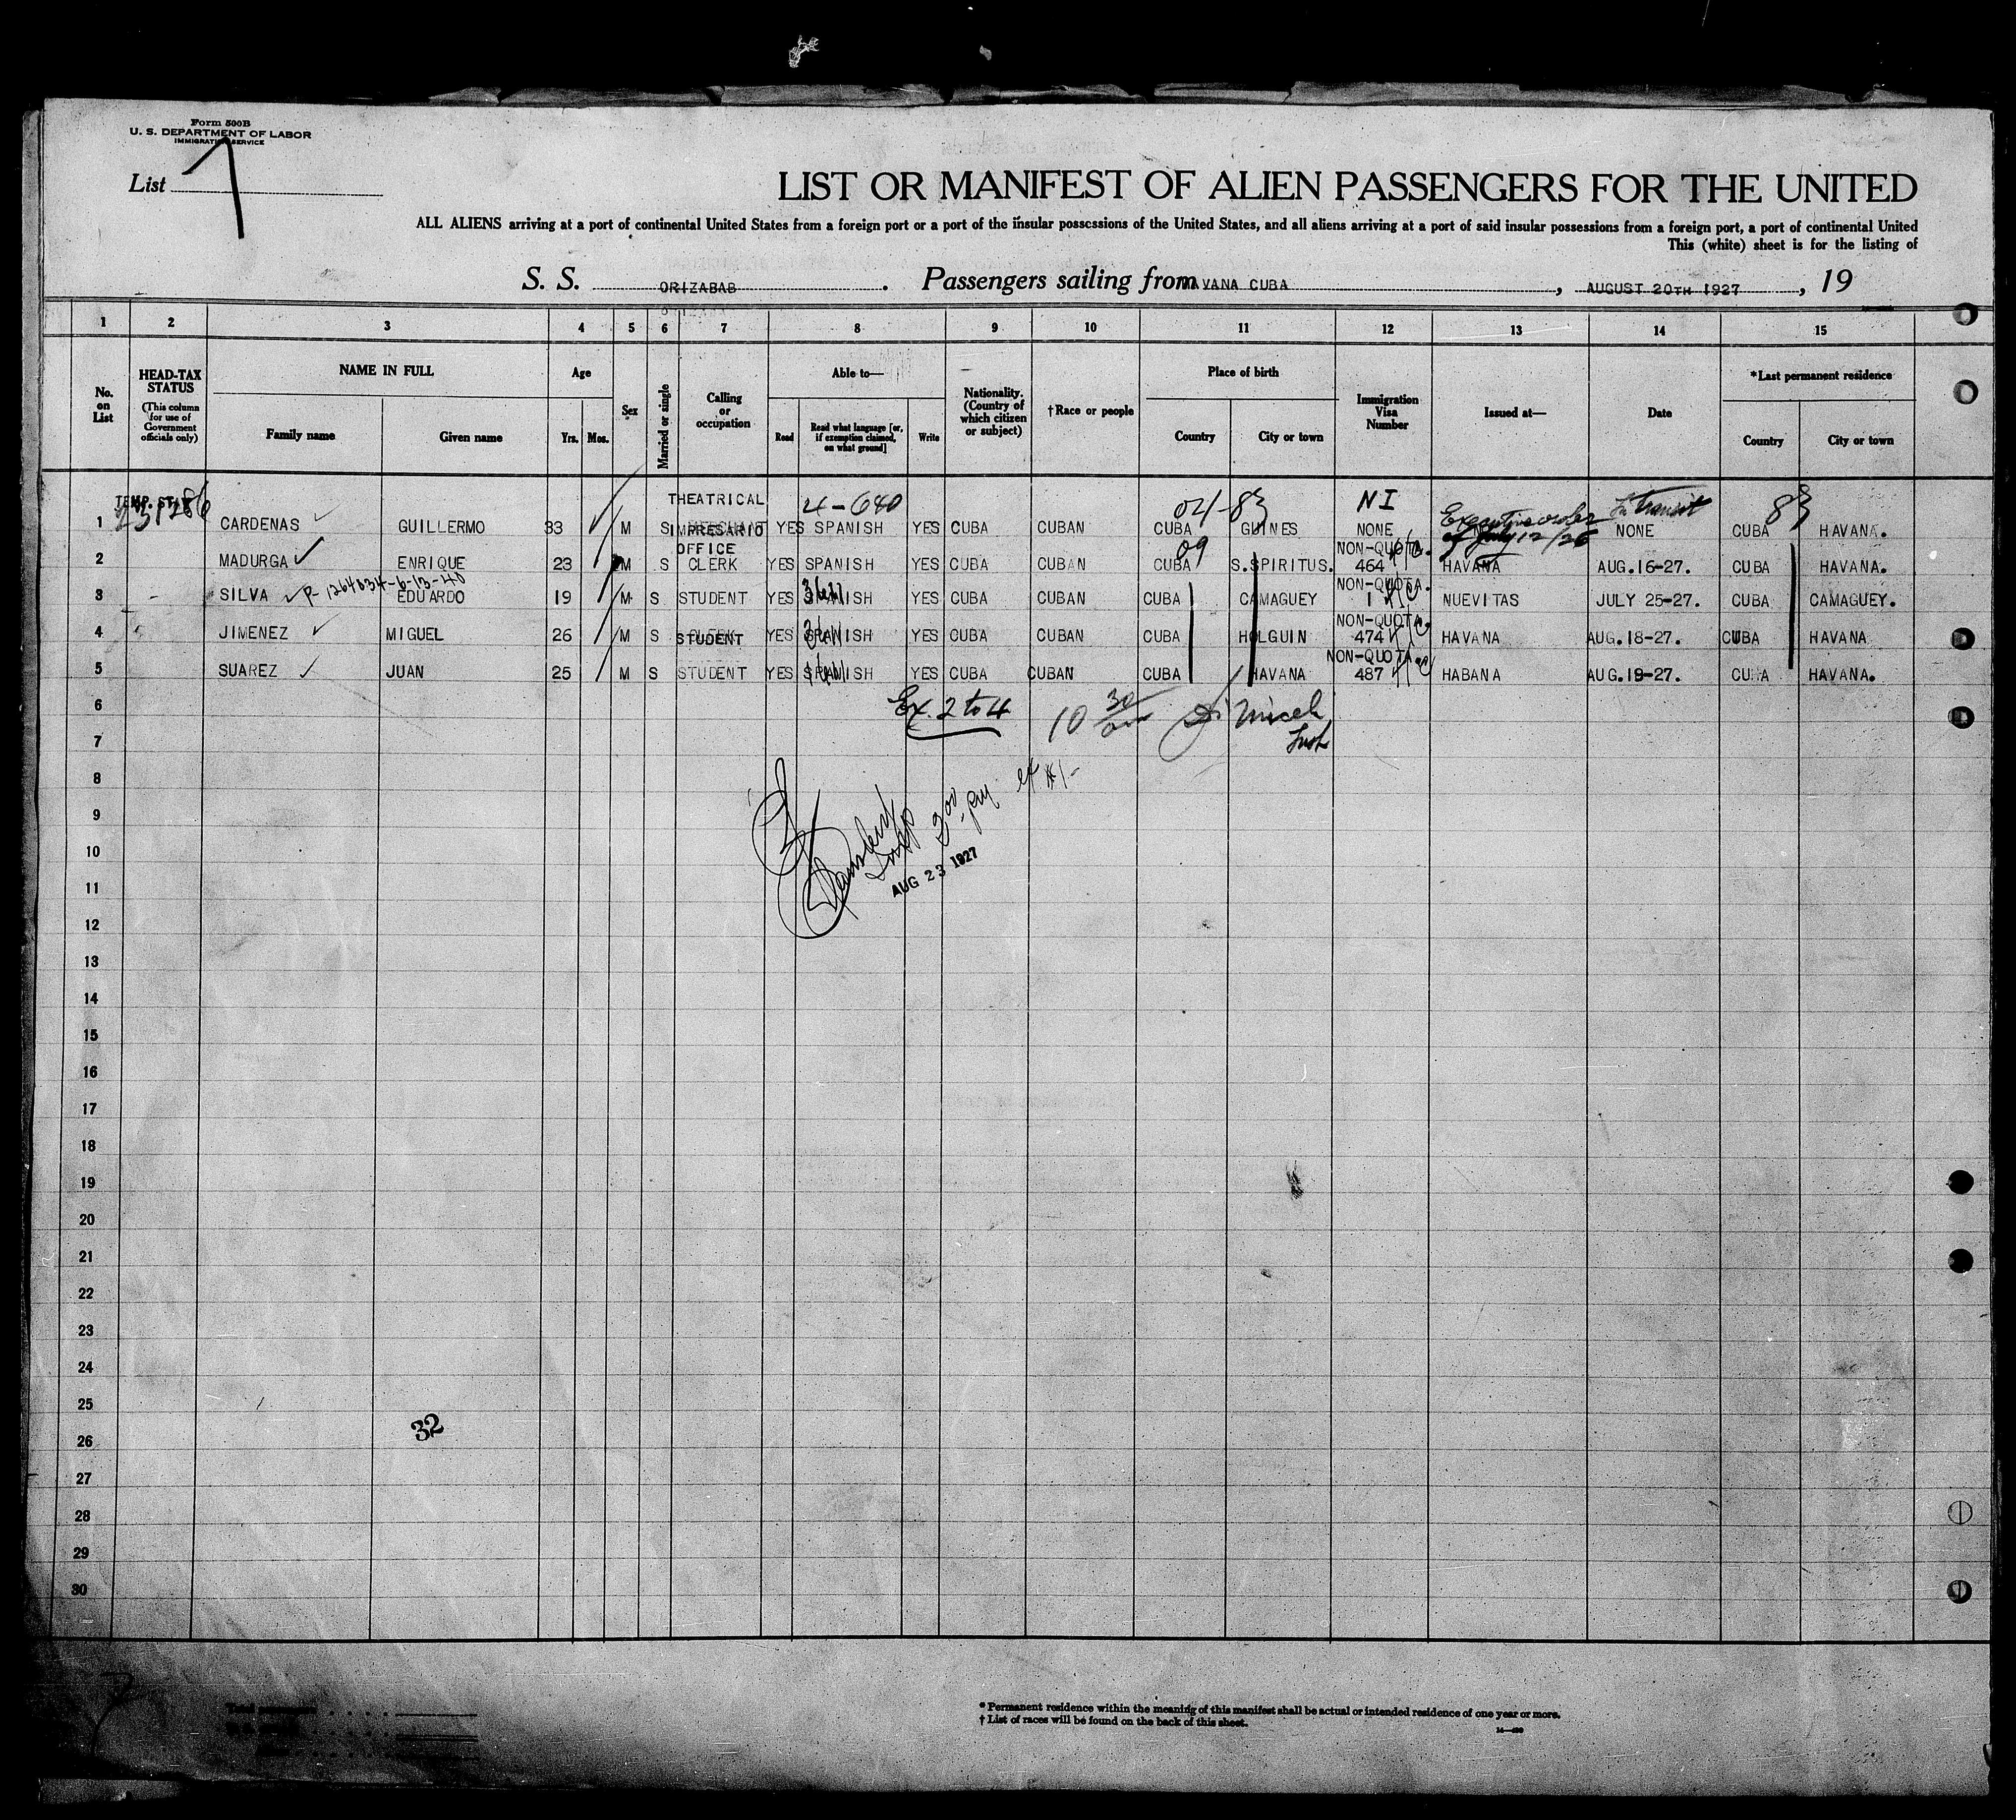 Form 500B
U. S. DEPARTMENT OF LABOR
IMMIGRATION SERVICE
List 7
LIST OR MANIFEST OF ALIEN PASSENGERS FOR THE UNITED
ALL ALIENS arriving at a port of continental United States from a foreign port or a port of the insular possessions of the United States, and all aliens arriving at a port of said insular possessions from a foreign port, a port of continental United
This (white) sheet is for the listing of
S. S. ORIZABAB . Passengers sailing from HAVANA CUBA , AUGUST 20TH 1927 , 19
1 2 3 4 5 6 7 8 9 10 11 12 13 14 15
No. on List
HEAD-TAX STATUS
(This column for use of Government officials only)
NAME IN FULL
Family name Given name
Age
Yrs. Mos.
Sex
Married or single
Calling or occupation
Able to—
Read Read what language [or, if exemption claimed, on what ground] Write
Nationality. (Country of which citizen or subject)
†Race or people
Place of birth
Country City or town
Immigration Visa Number
Issued at—
Date
*Last permanent residence
Country City or town
TEMP. THEATRICAL 4-640 04-83 NI Executive order In transit 83
1 231286 CARDENAS GUILLERMO 33 M S IMPRESARIO YES SPANISH YES CUBA CUBAN CUBA GUINES NONE of July 12/26 NONE CUBA HAVANA.
OFFICE 09 NON-QUOTA.
2 MADURGA ENRIQUE 23 M S CLERK YES SPANISH YES CUBA CUBAN CUBA S.SPIRITUS. 464 HAVANA AUG.16-27. CUBA HAVANA.
P-1264034-6-13-40 NON-QUOTA.
3 SILVA EDUARDO 19 M S STUDENT YES SPANISH YES CUBA CUBAN CUBA CAMAGUEY 1 NUEVITAS JULY 25-27. CUBA CAMAGUEY.
NON-QUOTA.
4 JIMENEZ MIGUEL 26 M S STUDENT YES SPANISH YES CUBA CUBAN CUBA HOLGUIN 474 HAVANA AUG.18-27. CUBA HAVANA
NON-QUOTA
5 SUAREZ JUAN 25 M S STUDENT YES SPANISH YES CUBA CUBAN CUBA HAVANA 487 HABANA AUG.19-27. CUBA HAVANA.
6 Ex. 2 to 4 10 30
7
8
9
10
11 AUG 23 1927
12
13
14
15
16
17
18
19
20
21
22
23
24
25
32
26
27
28
29
30
7
* Permanent residence within the meaning of this manifest shall be actual or intended residence of one year or more.
† List of races will be found on the back of this sheet.